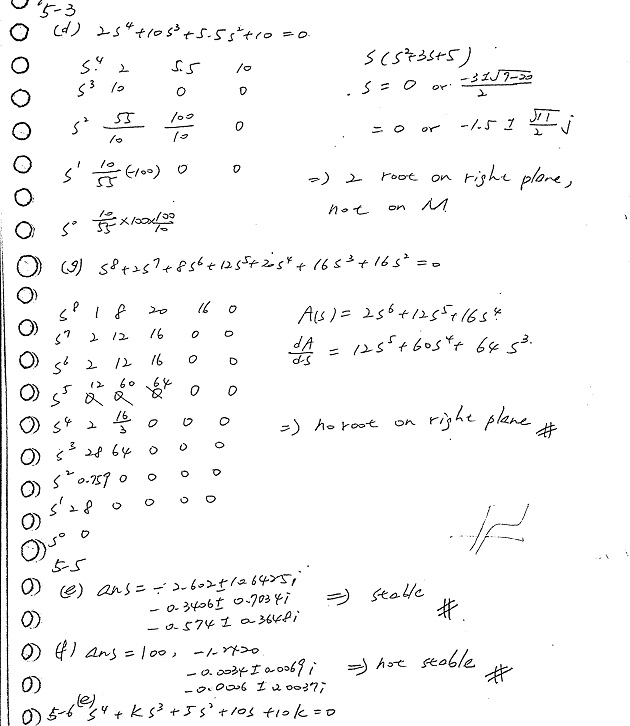 5-3
(d) 2s⁴+10s³+5.5s²+10=0
s⁴ 2 5.5 10
s³ 10 0 0
s² 55/10 100/10 0
s¹ 10/55 (-100) 0 0
s⁰ 10/55 × 100 × 100/10
s(s²+3s+5)
s = 0 or (-3±√9-20)/2
= 0 or -1.5 ± √11/2 j
=> 2 root on right plane,
not on
(g) s⁸+2s⁷+8s⁶+12s⁵+20s⁴+16s³+16s²=0
s⁸ 1 8 20 16 0
s⁷ 2 12 16 0 0
s⁶ 2 12 16 0 0
s⁵ 12 60 64 0 0
s⁴ 2 16/3 0 0 0
s³ 28 64 0 0 0
s² 0.759 0 0 0 0
s¹ 28 0 0 0 0
s⁰ 0
A(s) = 2s⁶+12s⁵+16s⁴
dA/ds = 12s⁵+60s⁴+64s³.
=> no root on right plane #
5-5
(e) ans = -2.602±1.6425i
-0.3406± 0.7034i
-0.574 ± 0.3648i
=> stable #
(f) ans = 100,
-0.0034±0.0069i
-0.0006 ± 0.0037i
=> not stable #
5-6 (e) s⁴+ks³+5s²+10s+10k=0